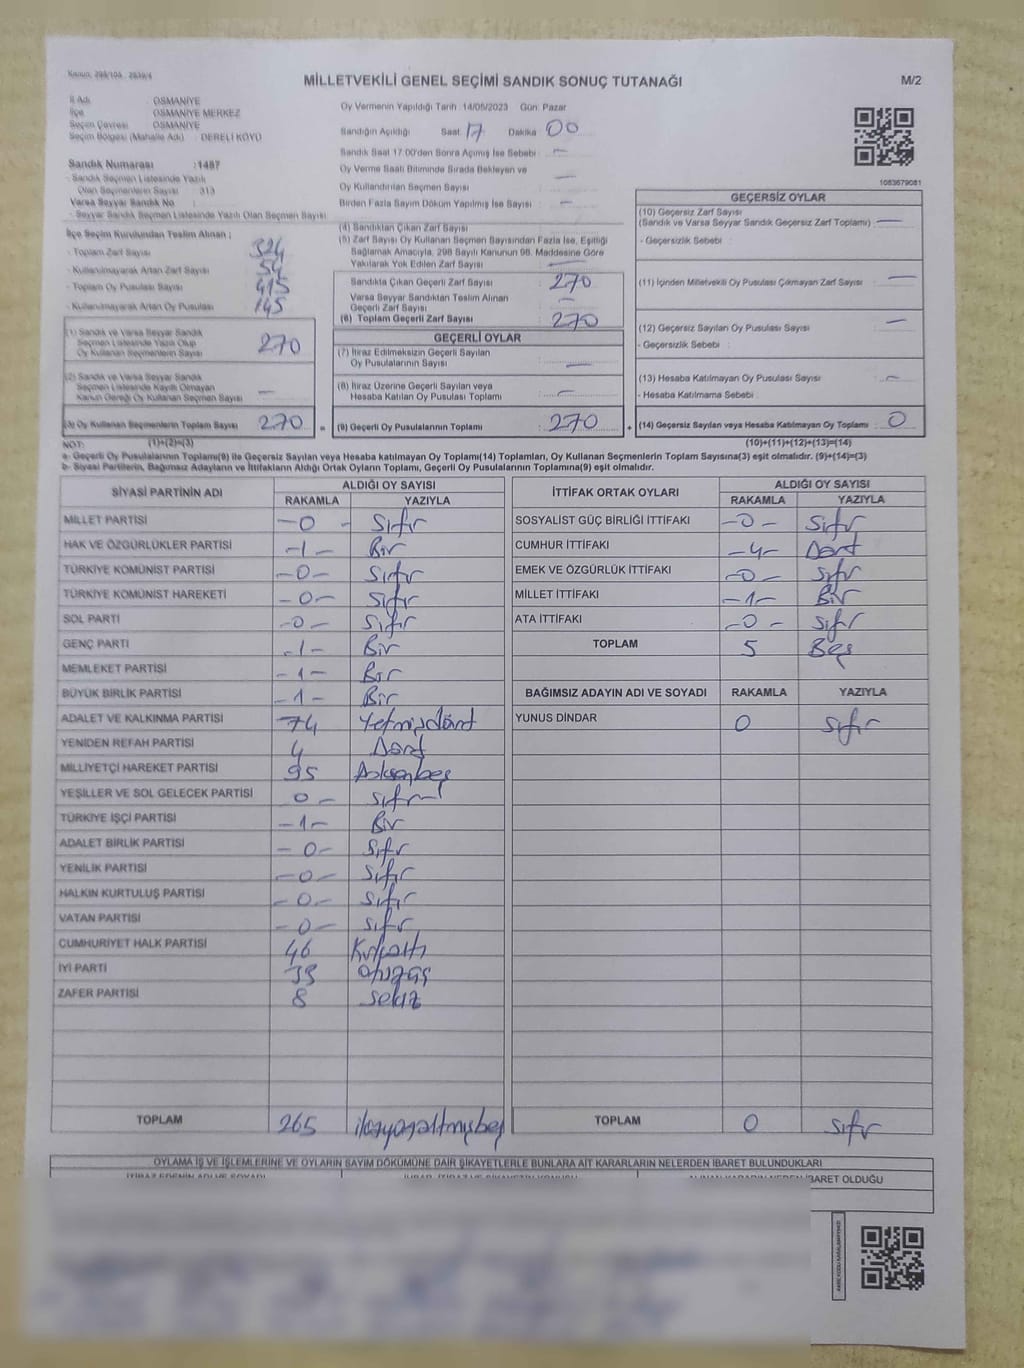 Kanun: 298/105 - 2839/4
MİLLETVEKİLİ GENEL SEÇİMİ SANDIK SONUÇ TUTANAĞI
M/2
İl Adı : OSMANİYE
İlçe : OSMANİYE MERKEZ
Seçim Çevresi : OSMANİYE
Seçim Bölgesi (Mahalle Adı) : DERELİ KÖYÜ
Oy Vermenin Yapıldığı Tarih : 14/05/2023 Gün: Pazar
Sandığın Açıldığı Saat 17 Dakika 00
Sandık Saat 17:00'den Sonra Açılmış İse Sebebi : —
Oy Verme Saati Bitiminde Sırada Bekleyen ve
Oy Kullandırılan Seçmen Sayısı : —
Birden Fazla Sayım Döküm Yapılmış İse Sayısı : —
Sandık Numarası : 1487
- Sandık Seçmen Listesinde Yazılı
Olan Seçmenlerin Sayısı : 313
Varsa Seyyar Sandık No :
- Seyyar Sandık Seçmen Listesinde Yazılı Olan Seçmen Sayısı
İlçe Seçim Kurulundan Teslim Alınan ;
- Toplam Zarf Sayısı : 324
- Kullanılmayarak Artan Zarf Sayısı : 54
- Toplam Oy Pusulası Sayısı : 415
- Kullanılmayarak Artan Oy Pusulası : 145
(1) Sandık ve Varsa Seyyar Sandık
Seçmen Listesinde Yazılı Olup
Oy Kullanan Seçmenlerin Sayısı : 270
(2) Sandık ve Varsa Seyyar Sandık
Seçmen Listesinde Kayıtlı Olmayan
Kanun Gereği Oy Kullanan Seçmen Sayısı : —
(3) Oy Kullanan Seçmenlerin Toplam Sayısı : 270 =
(4) Sandıktan Çıkan Zarf Sayısı :
(5) Zarf Sayısı Oy Kullanan Seçmen Sayısından Fazla İse, Eşitliği
Sağlamak Amacıyla, 298 Sayılı Kanunun 98. Maddesine Göre
Yakılarak Yok Edilen Zarf Sayısı : —
Sandıkta Çıkan Geçerli Zarf Sayısı : 270
Varsa Seyyar Sandıktan Teslim Alınan
Geçerli Zarf Sayısı : —
(6) Toplam Geçerli Zarf Sayısı : 270
GEÇERLİ OYLAR
(7) İtiraz Edilmeksizin Geçerli Sayılan
Oy Pusulalarının Sayısı : —
(8) İtiraz Üzerine Geçerli Sayılan veya
Hesaba Katılan Oy Pusulası Toplamı : —
(9) Geçerli Oy Pusulalarının Toplamı : 270 +
1083679081
GEÇERSİZ OYLAR
(10) Geçersiz Zarf Sayısı
(Sandık ve Varsa Seyyar Sandık Geçersiz Zarf Toplamı) : —
- Geçersizlik Sebebi :
(11) İçinden Milletvekili Oy Pusulası Çıkmayan Zarf Sayısı : —
(12) Geçersiz Sayılan Oy Pusulası Sayısı : —
- Geçersizlik Sebebi :
(13) Hesaba Katılmayan Oy Pusulası Sayısı : —
- Hesaba Katılmama Sebebi :
(14) Geçersiz Sayılan veya Hesaba Katılmayan Oy Toplamı : 0
NOT: (1)+(2)=(3) (10)+(11)+(12)+(13)=(14)
a- Geçerli Oy Pusulalarının Toplamı(9) ile Geçersiz Sayılan veya Hesaba katılmayan Oy Toplamı(14) Toplamları, Oy Kullanan Seçmenlerin Toplam Sayısına(3) eşit olmalıdır. (9)+(14)=(3)
b- Siyasi Partilerin, Bağımsız Adayların ve İttifakların Aldığı Ortak Oyların Toplamı, Geçerli Oy Pusulalarının Toplamına(9) eşit olmalıdır.
SİYASİ PARTİNİN ADI ALDIĞI OY SAYISI
RAKAMLA YAZIYLA
MİLLET PARTİSİ —0— Sıfır
HAK VE ÖZGÜRLÜKLER PARTİSİ —1— Bir
TÜRKİYE KOMÜNİST PARTİSİ —0— Sıfır
TÜRKİYE KOMÜNİST HAREKETİ —0— Sıfır
SOL PARTİ —0— Sıfır
GENÇ PARTİ —1— Bir
MEMLEKET PARTİSİ —1— Bir
BÜYÜK BİRLİK PARTİSİ —1— Bir
ADALET VE KALKINMA PARTİSİ 74 Yetmişdört
YENİDEN REFAH PARTİSİ 4 Dört
MİLLİYETÇİ HAREKET PARTİSİ 95 Doksanbeş
YEŞİLLER VE SOL GELECEK PARTİSİ 0— Sıfır
TÜRKİYE İŞÇİ PARTİSİ —1— Bir
ADALET BİRLİK PARTİSİ —0— Sıfır
YENİLİK PARTİSİ —0— Sıfır
HALKIN KURTULUŞ PARTİSİ —0— Sıfır
VATAN PARTİSİ —0— Sıfır
CUMHURİYET HALK PARTİSİ 46 Kırkaltı
İYİ PARTİ 33 otuzüç
ZAFER PARTİSİ 8 sekiz
TOPLAM 265 ikiyüzaltmışbeş
İTTİFAK ORTAK OYLARI ALDIĞI OY SAYISI
RAKAMLA YAZIYLA
SOSYALİST GÜÇ BİRLİĞİ İTTİFAKI —0— Sıfır
CUMHUR İTTİFAKI —4— Dört
EMEK VE ÖZGÜRLÜK İTTİFAKI —0— Sıfır
MİLLET İTTİFAKI —1— Bir
ATA İTTİFAKI —0— Sıfır
TOPLAM 5 Beş
BAĞIMSIZ ADAYIN ADI VE SOYADI RAKAMLA YAZIYLA
YUNUS DİNDAR 0 sıfır
TOPLAM 0 sıfır
OYLAMA İŞ VE İŞLEMLERİNE VE OYLARIN SAYIM DÖKÜMÜNE DAİR ŞİKAYETLERLE BUNLARA AİT KARARLARIN NELERDEN İBARET BULUNDUKLARI
İBARET OLDUĞU